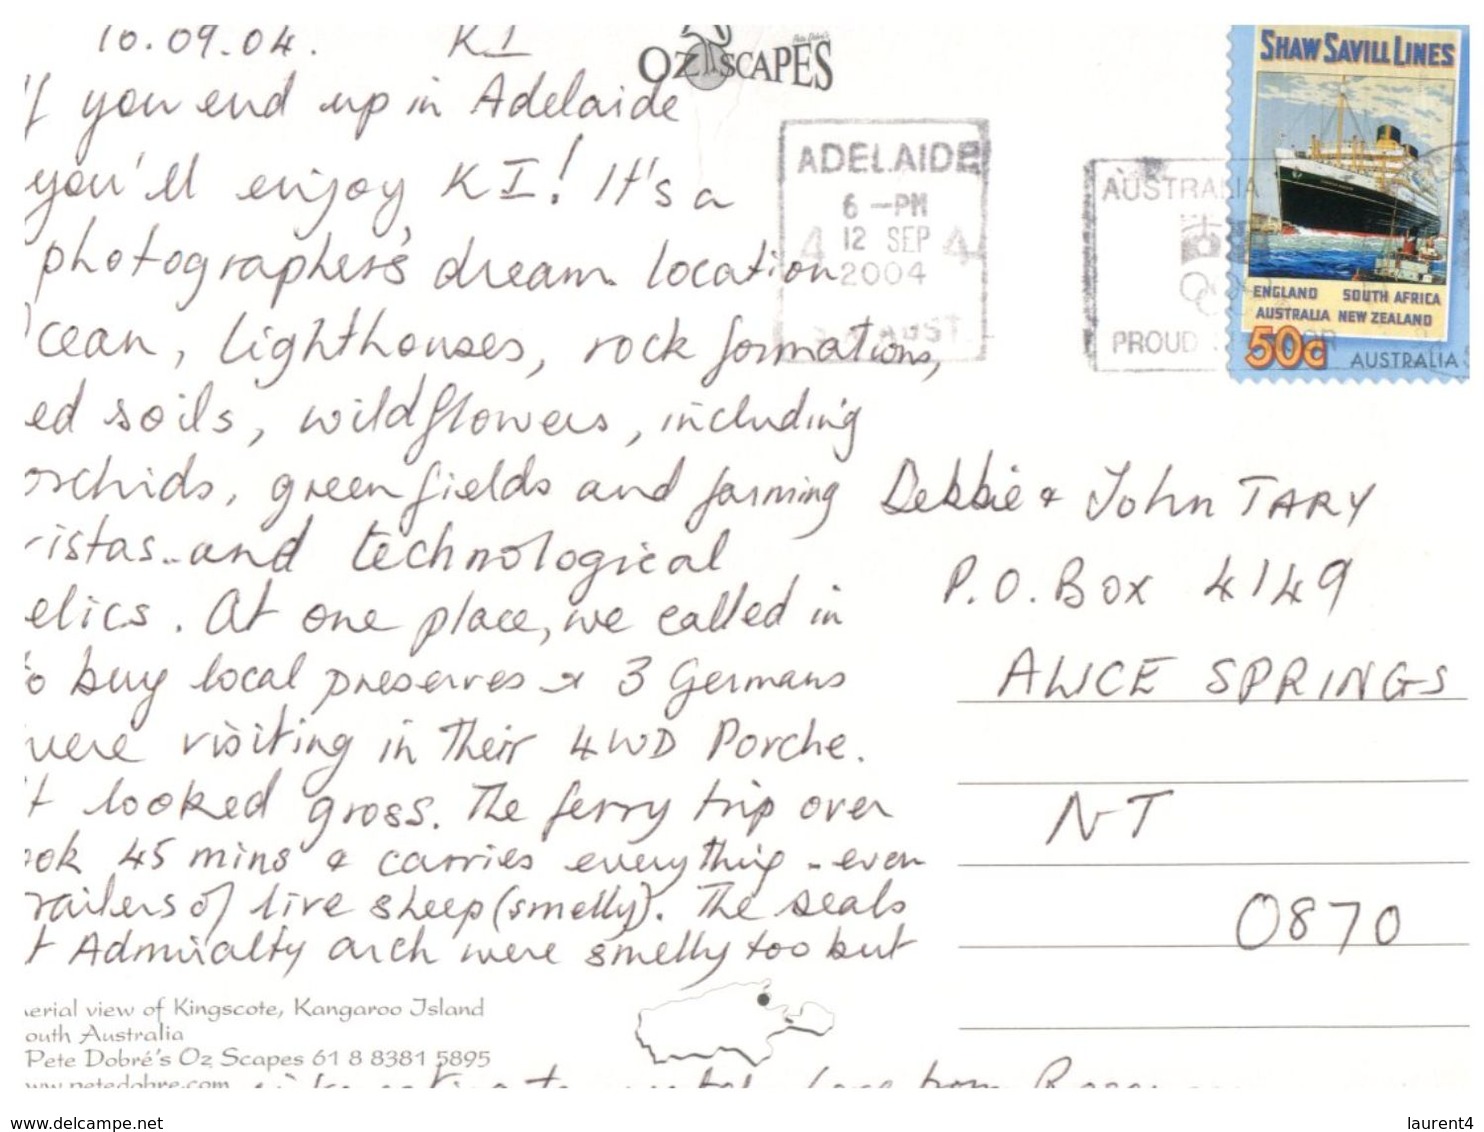 10.09.04. KI
f you end up in Adelaide
you'll enjoy KI! It's a
photographer's dream location
cean, lighthouses, rock formations,
ed soils, wildflowers, including
orchids, green fields and farming
istas..and technological
elics. At one place, we called in
to buy local preserves & 3 Germans
were visiting in their 4WD Porche.
t looked gross. The ferry trip over
ook 45 mins & carries everything - even
railers of live sheep (smelly). The seals
t Admiralty arch were smelly too but
erial view of Kingscote, Kangaroo Island
outh Australia
Pete Dobré's Oz Scapes 61 8 8381 5895
ww.petedobre.com
love from
Pete Dobré's
OZ SCAPES
ADELAIDE
6 -PM
4 12 SEP 4
2004
S.A. AUST
AUSTRALIA
PROUD
SHAW SAVILL LINES
ENGLAND SOUTH AFRICA
AUSTRALIA NEW ZEALAND
50c AUSTRALIA
Debbie & John TARY
P.O. Box 4149
ALICE SPRINGS
NT
0870
www.delcampe.net
laurent4